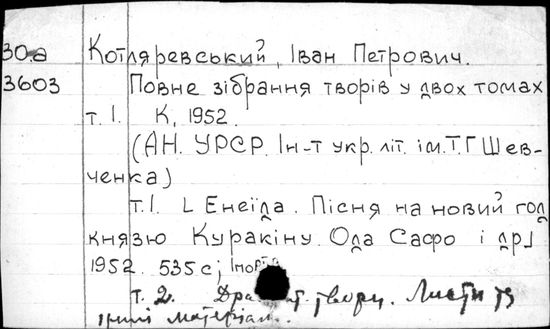 30.а Котляревський, Іван Петрович.
3603 Повне зібрання творів у двох томах
т. I. К, 1952.
(АН. УРСР. Ін-т укр. літ. ім. Т.Г Шев-
ченка)
т. I. L Енеїда. Пісня на новий год
князю Куракіну. Ода Сафо і др]
1952. 535 с;
т. 2. твори. Листи та
інші матеріал.